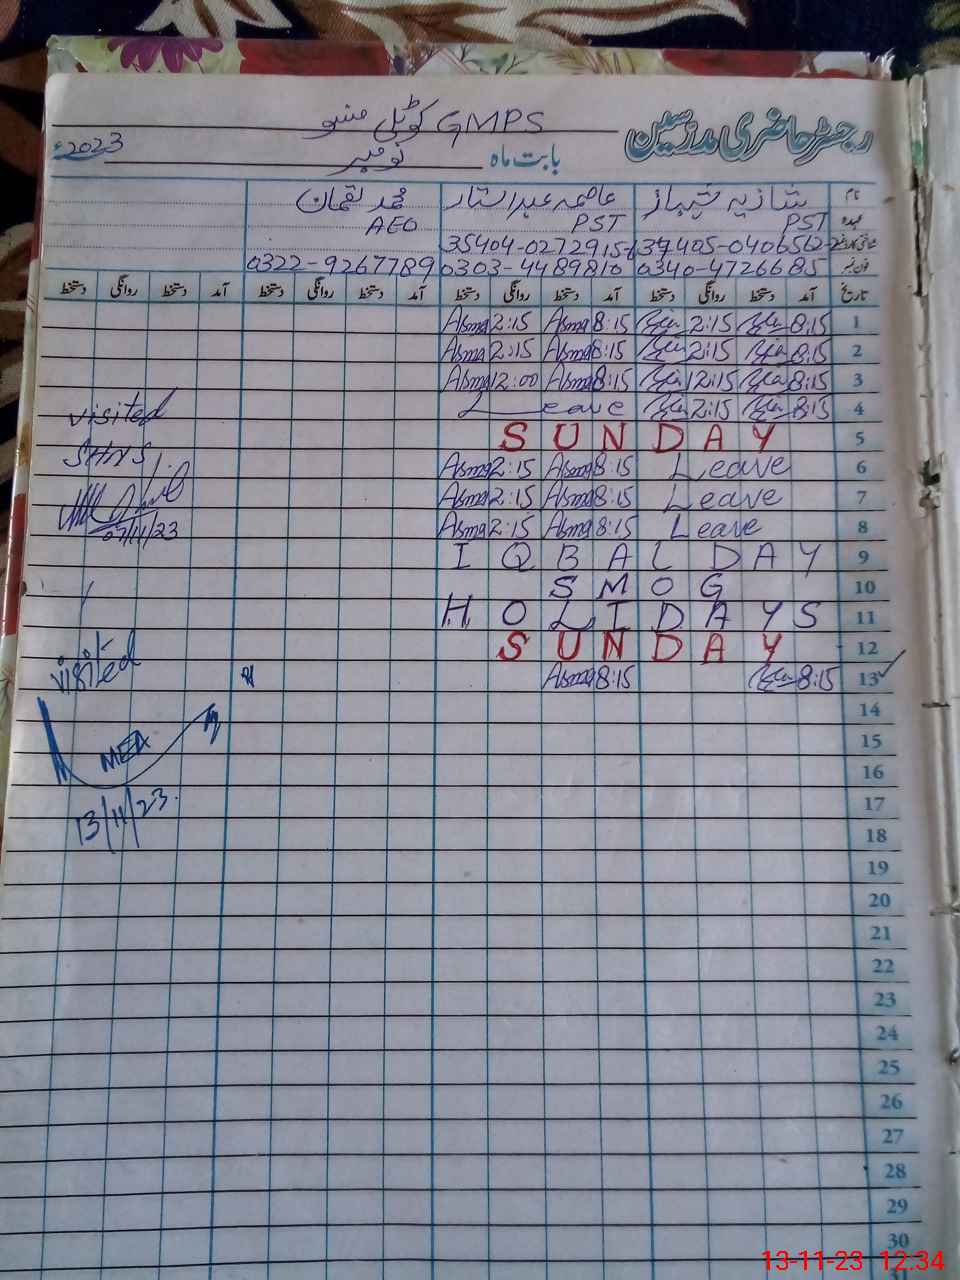 رجسٹر حاضری مدرسین
GMPS کوٹلی منسو
بابت ماہ نومبر 2023ء
نام شازیہ شہباز عاصمہ عبدالستار محمد لقمان
عہدہ PST PST AEO
35404-0272915-6
0340-4726685 0303-4489810 0322-9267789
تاریخ آمد دستخط روانگی دستخط آمد دستخط روانگی دستخط آمد دستخط روانگی دستخط آمد دستخط روانگی دستخط
1 8:15 2:15 8:15 Asma 2:15 Asma
2 8:15 2:15 8:15 Asma 2:15 Asma
3 8:15 12:15 8:15 Asma 12:00 Asma
4 8:15 2:15 Leave
visited
5 SUNDAY
SHNS
6 Leave 8:15 Asma 2:15 Asma
7 Leave 8:15 Asma 2:15 Asma
8 Leave 8:15 Asma 2:15 Asma
07/11/23
9 IQBAL DAY
10 SMOG
11 HOLIDAYS
12 SUNDAY
visited
13 8:15 8:15 Asma
14
15
MEA
16
17
13/11/23.
18
19
20
21
22
23
24
25
26
27
28
29
30
13-11-23 12:34